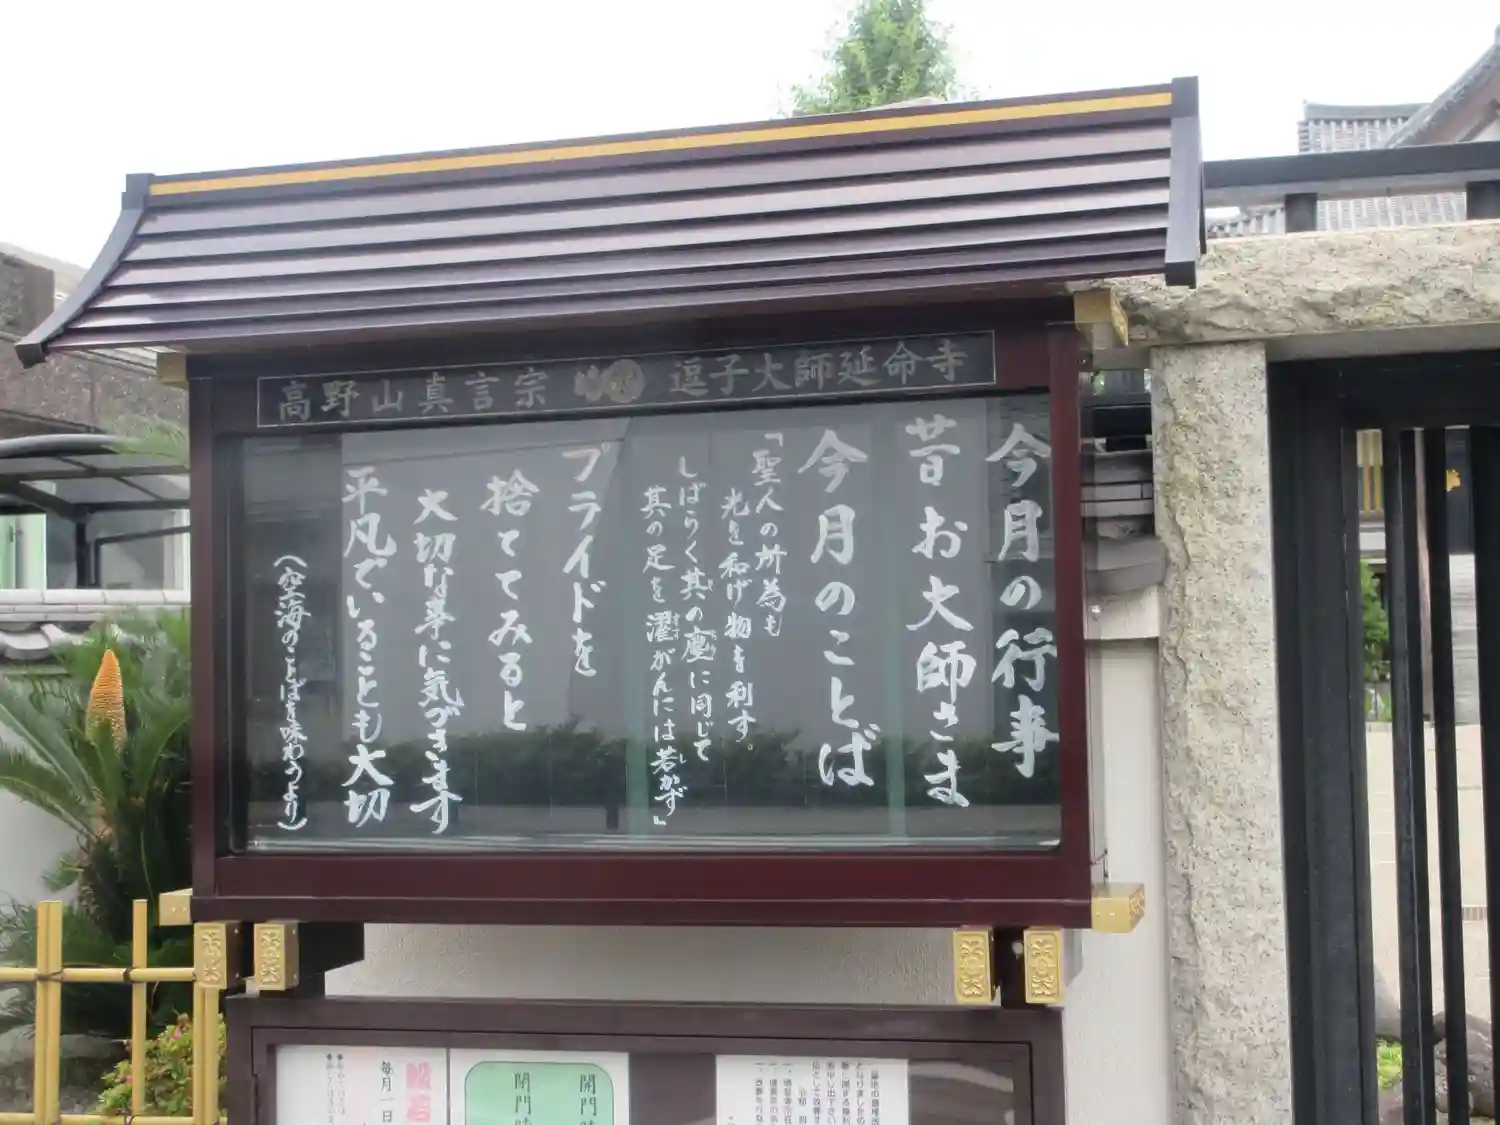 高野山真言宗 逗子大師延命寺
今月の行事
昔お大師さま
今月のことば
「聖人の所為も
光を和げ物を利す。
しばらく其の塵に同じて
其の足を濯がんには若かず」
プライドを
捨ててみると
大切な事に気づきます
平凡でいることも大切
（空海のことばを味わうより）
開門
閉門
毎月一日